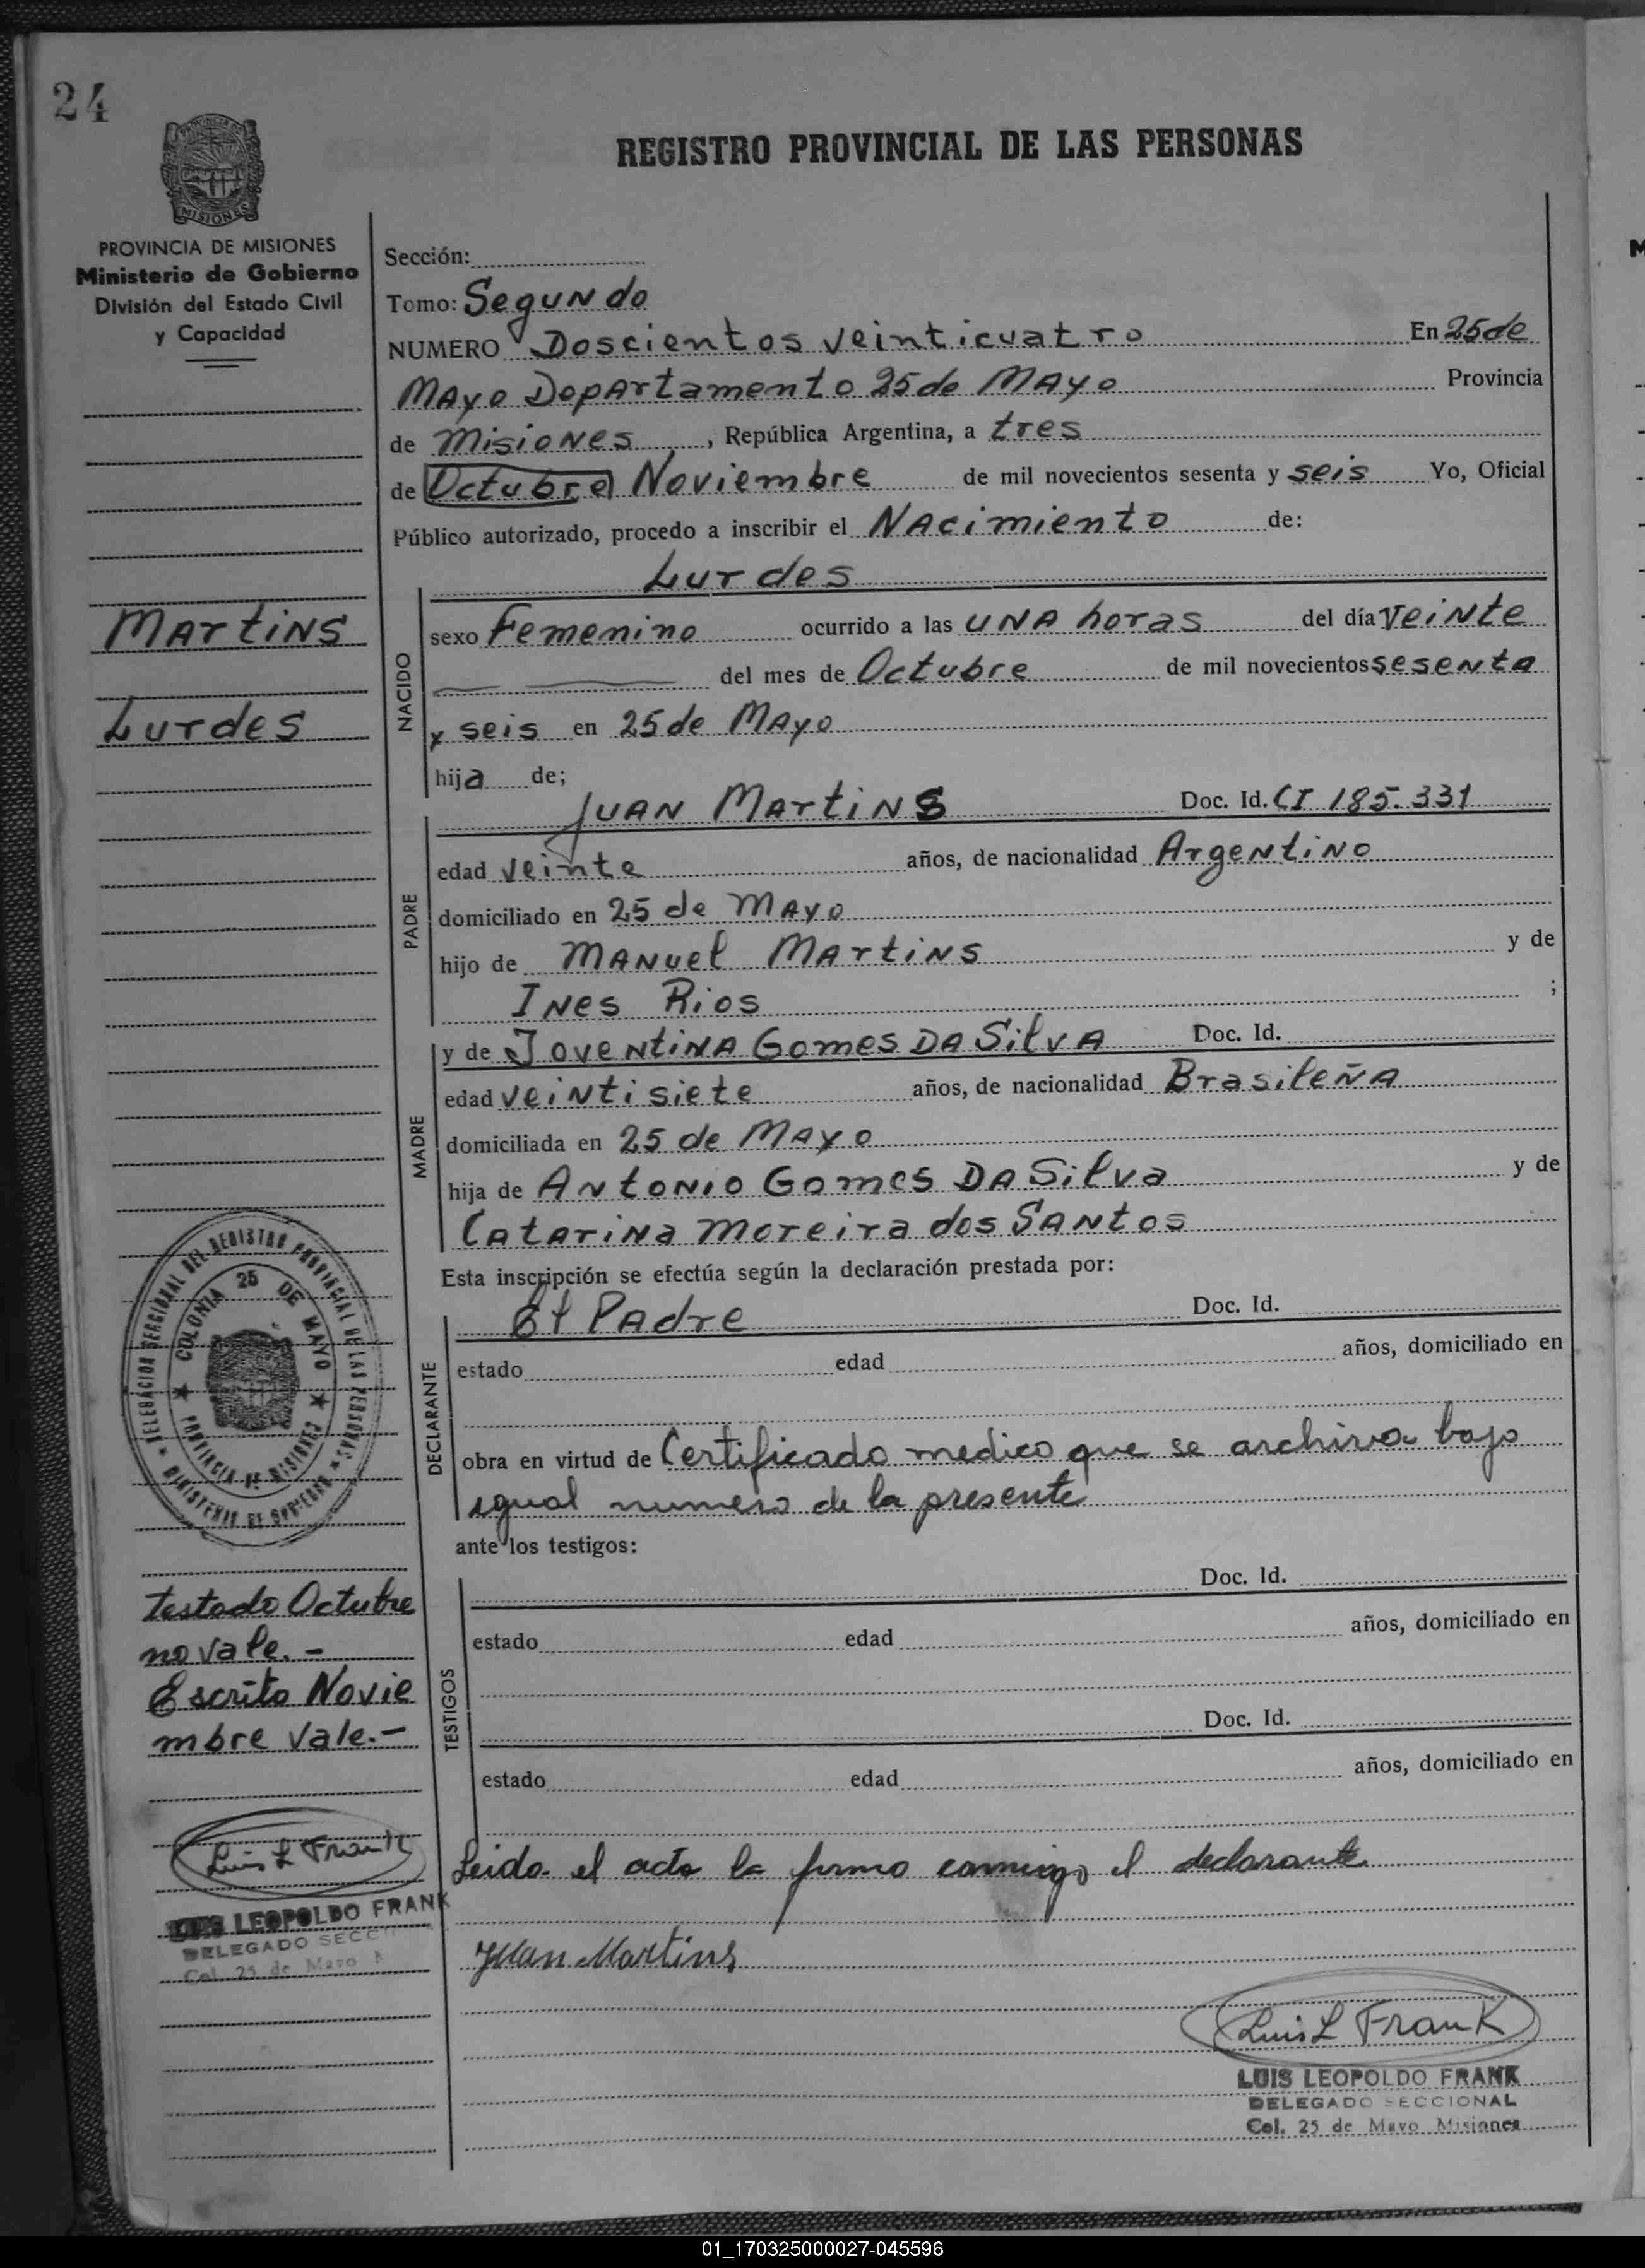 24
REGISTRO PROVINCIAL DE LAS PERSONAS
MISIONES
PROVINCIA DE MISIONES
Ministerio de Gobierno
División del Estado Civil
y Capacidad
Martins
Lurdes
Sección:
Tomo: Segundo
NUMERO Doscientos veinticuatro En 25 de
Mayo Departamento 25 de Mayo Provincia
de Misiones, República Argentina, a tres
de Octubre Noviembre de mil novecientos sesenta y seis Yo, Oficial
Público autorizado, procedo a inscribir el Nacimiento de:
Lurdes
NACIDO
sexo Femenino ocurrido a las una horas del día veinte
del mes de Octubre de mil novecientos sesenta
y seis en 25 de Mayo
hija de;
Juan Martins Doc. Id. CI 185.331
PADRE
edad veinte años, de nacionalidad Argentino
domiciliado en 25 de Mayo
hijo de Manuel Martins y de
Ines Rios ;
MADRE
y de Joventina Gomes Da Silva Doc. Id.
edad veintisiete años, de nacionalidad Brasileña
domiciliada en 25 de Mayo
hija de Antonio Gomes Da Silva y de
Catarina Moreira dos Santos
Esta inscripción se efectúa según la declaración prestada por:
El Padre Doc. Id.
DECLARANTE
estado edad años, domiciliado en
obra en virtud de Certificado medico que se archiva bajo
igual numero de la presente
ante los testigos:
TESTIGOS
Doc. Id.
estado edad años, domiciliado en
Doc. Id.
estado edad años, domiciliado en
Leida el acta la firma conmigo el declarante
Juan Martins
Luis L Frank
LUIS LEOPOLDO FRANK
DELEGADO SECCIONAL
Col. 25 de Mayo Misiones
DELEGACION SECCIONAL DEL REGISTRO PROVINCIAL DE LAS PERSONAS
MINISTERIO DE GOBIERNO
COLONIA 25 DE MAYO
PROVINCIA DE MISIONES
testado Octubre
no vale.-
Escrito Novie
mbre vale.-
Luis L Frank
LUIS LEOPOLDO FRANK
DELEGADO SECCI
Col. 25 de Mayo M
01_170325000027-045596